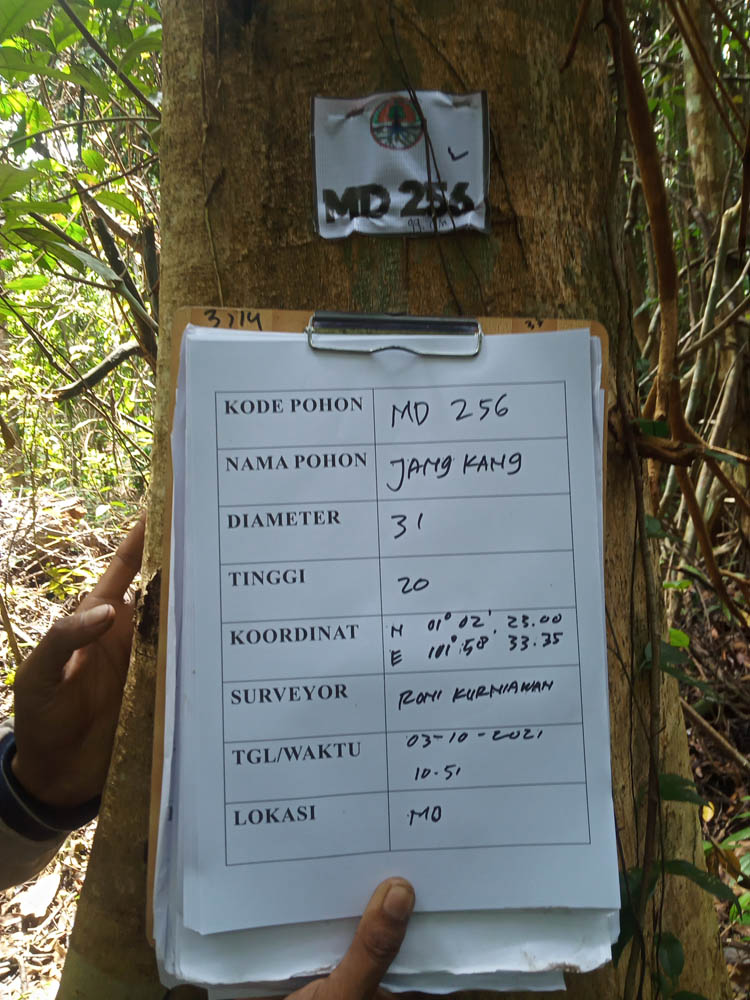 MD 256
3714
KODE POHON MD 256
NAMA POHON JANGKANG
DIAMETER 31
TINGGI 20
KOORDINAT N 01° 02' 25.00
E 101° 58' 33.35
SURVEYOR RONI KURNIAWAN
TGL/WAKTU 03-10-2021
10.51
LOKASI MD